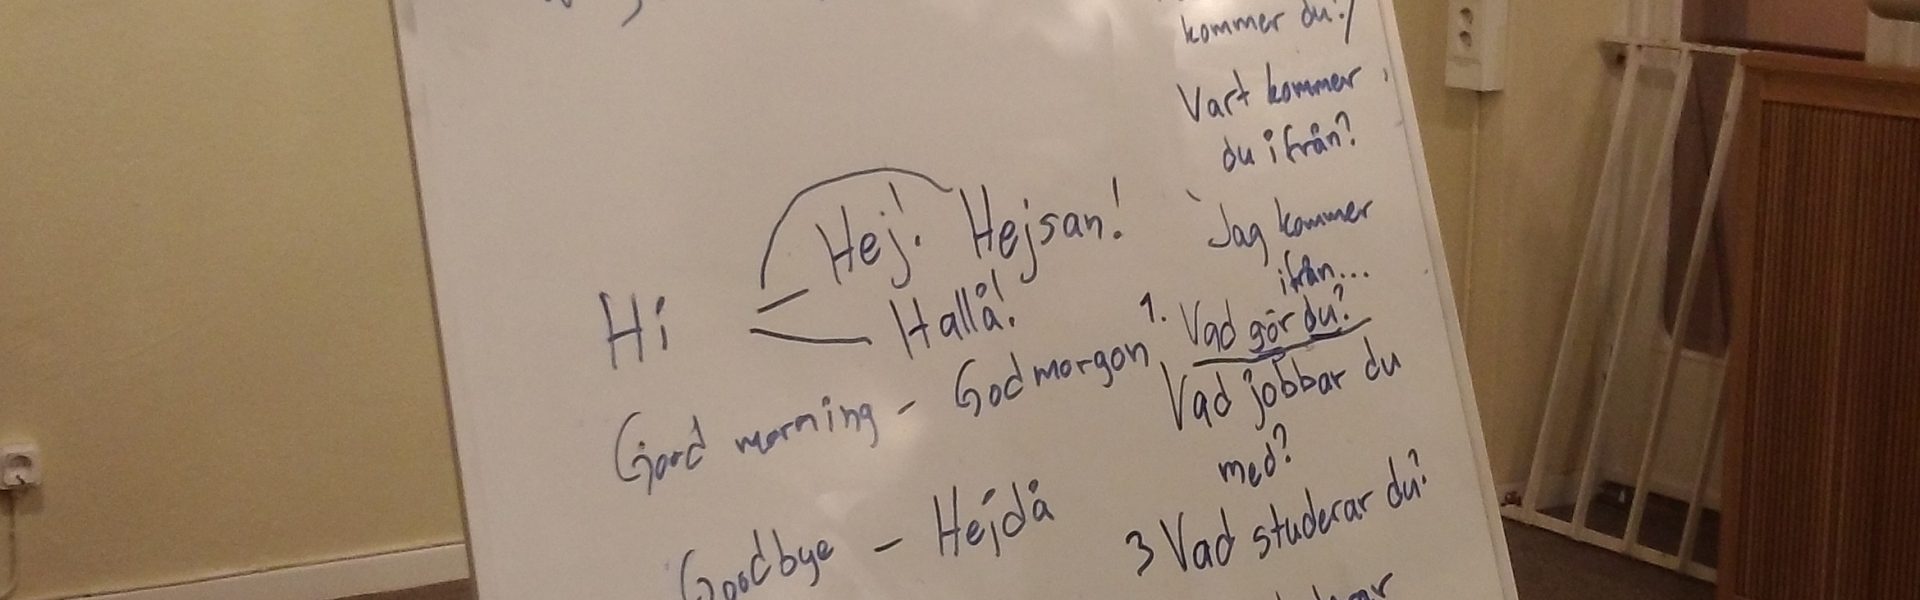 Hi
Hej! Hejsan!
Hallå!
Good morning - Godmorgon
Goodbye - Hejdå
kommer du?
Vart kommer
du ifrån?
Jag kommer
ifrån...
1. Vad gör du?
Vad jobbar du
med?
3 Vad studerar du?